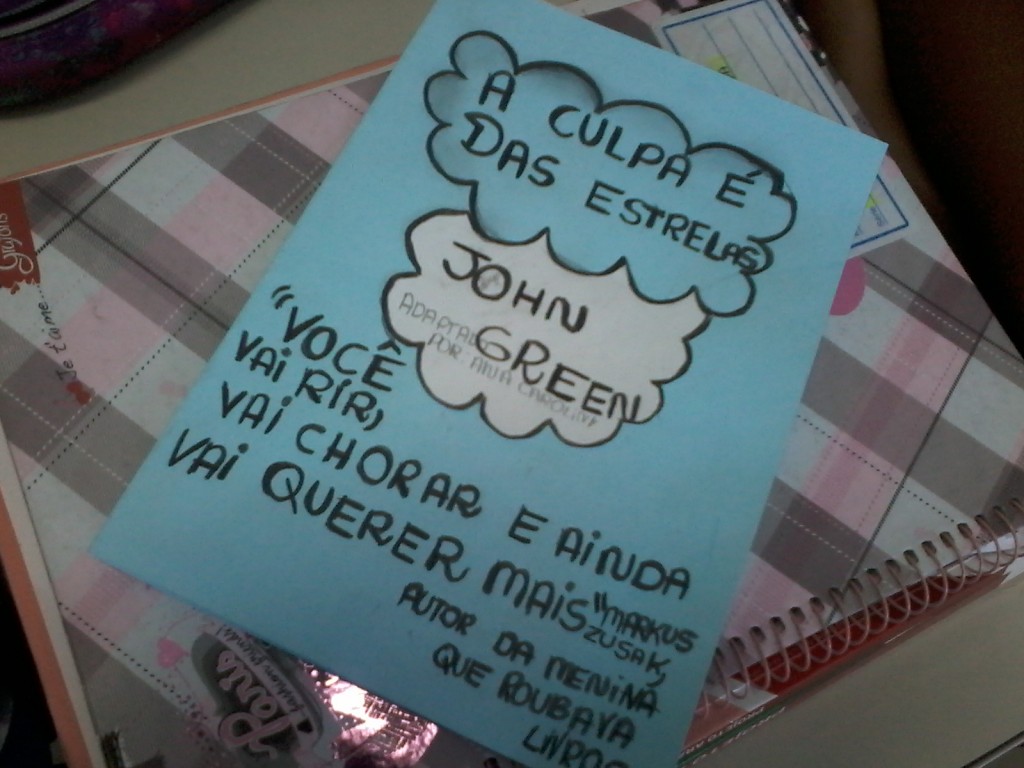 A CULPA É
DAS ESTRELAS
JOHN
GREEN
ADAPTADO
POR: ANA CAROLINA
"VOCÊ
VAI RIR,
VAI CHORAR E AINDA
VAI QUERER MAIS"
MARKUS
ZUSAK,
AUTOR DA MENINA
QUE ROUBAVA
LIVROS
Je t'aime...
Paris